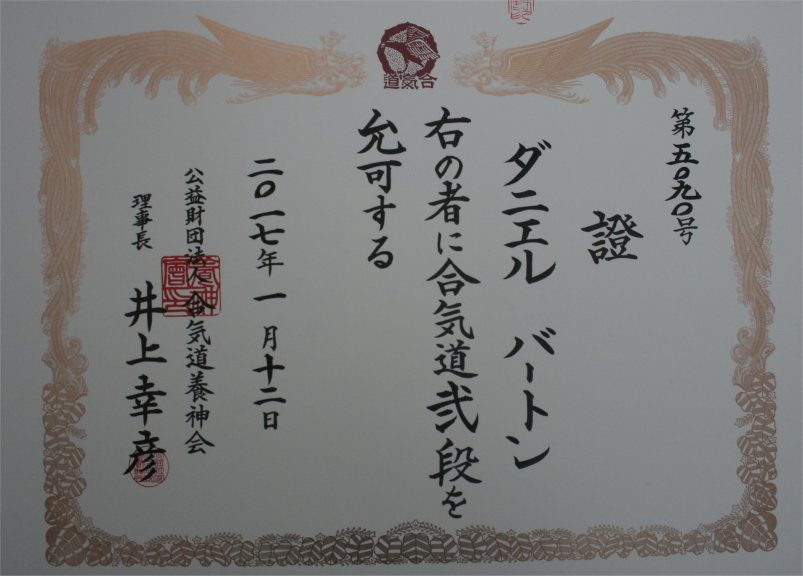 合氣道
第五〇九〇号
證
ダニエル バートン
右の者に合気道弐段を
允可する
二〇一七年一月十二日
公益財団法人合気道養神会
理事長 井上幸彦